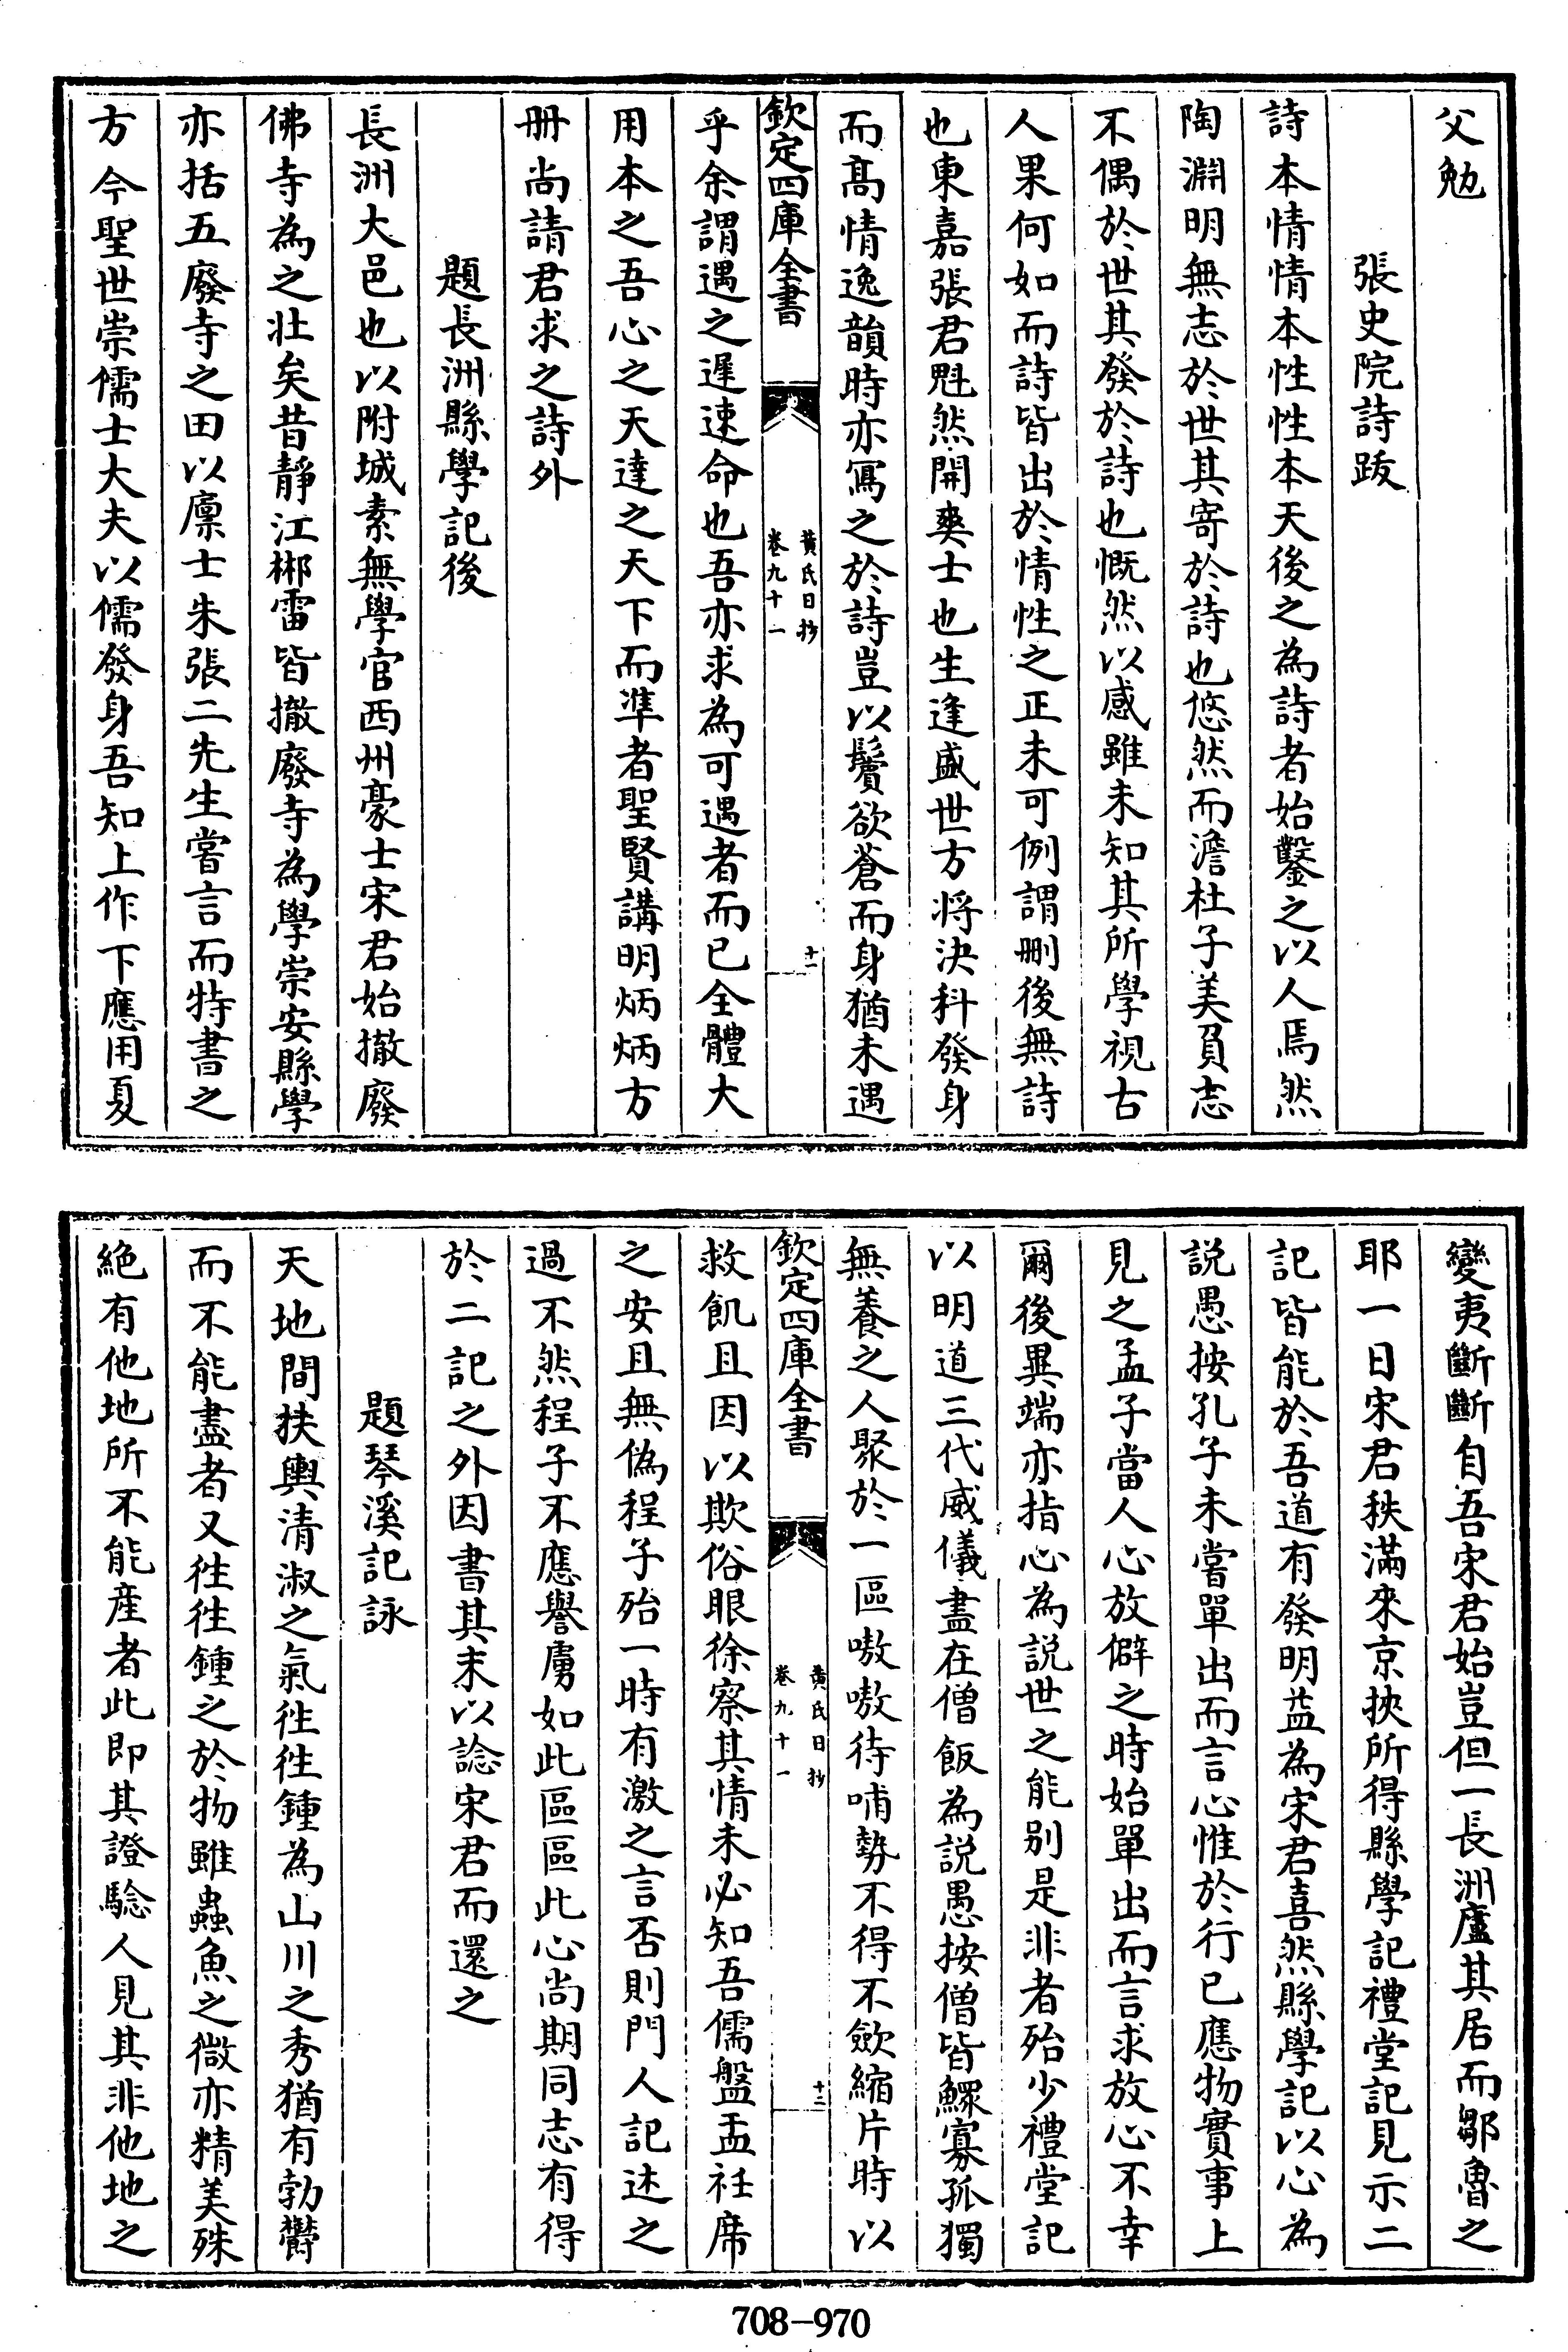 父勉
張史院詩跋
詩本情情本性性本天後之為詩者始鑿之以人焉然
陶淵明無志於世其寄於詩也悠然而澹杜子美負志
不偶於世其發於詩也慨然以感雖未知其所學視古
人果何如而詩皆出於情性之正未可例謂刪後無詩
也東嘉張君魁然開爽士也生逢盛世方将決科發身
而髙情逸韻時亦寫之於詩豈以鬢欲蒼而身猶未遇
欽定四庫全書
黄氏日抄
卷九十一
十一
乎余謂遇之遲速命也吾亦求為可遇者而已全體大
用本之吾心之天達之天下而準者聖賢講明炳炳方
冊尚請君求之詩外
題長洲縣學記後
長洲大邑也以附城素無學官西州豪士宋君始撤廢
佛寺為之壮矣昔靜江郴雷皆撤廢寺為學崇安縣學
亦括五廢寺之田以廩士朱張二先生嘗言而特書之
方今聖世崇儒士大夫以儒發身吾知上作下應用夏
變夷斷斷自吾宋君始豈但一長洲廬其居而鄒魯之
耶一日宋君秩滿來京挾所得縣學記禮堂記見示二
記皆能於吾道有發明益為宋君喜然縣學記以心為
説愚按孔子未嘗單出而言心惟於行已應物實事上
見之孟子當人心放僻之時始單出而言求放心不幸
爾後異端亦指心為説世之能别是非者殆少禮堂記
以明道三代威儀盡在僧飯為説愚按僧皆鰥寡孤獨
無養之人聚於一區嗷嗷待哺勢不得不歛縮片時以
欽定四庫全書
黄氏日抄
卷九十一
十二
救飢且因以欺俗眼徐察其情未必知吾儒盤盂衽席
之安且無偽程子殆一時有激之言否則門人記述之
過不然程子不應譽虜如此區區此心尚期同志有得
於二記之外因書其末以諗宋君而還之
題琴溪記詠
天地間扶輿清淑之氣徃徃鍾為山川之秀猶有勃鬱
而不能盡者又徃徃鍾之於物雖蟲魚之微亦精美殊
絶有他地所不能産者此即其證驗人見其非他地之
708-970